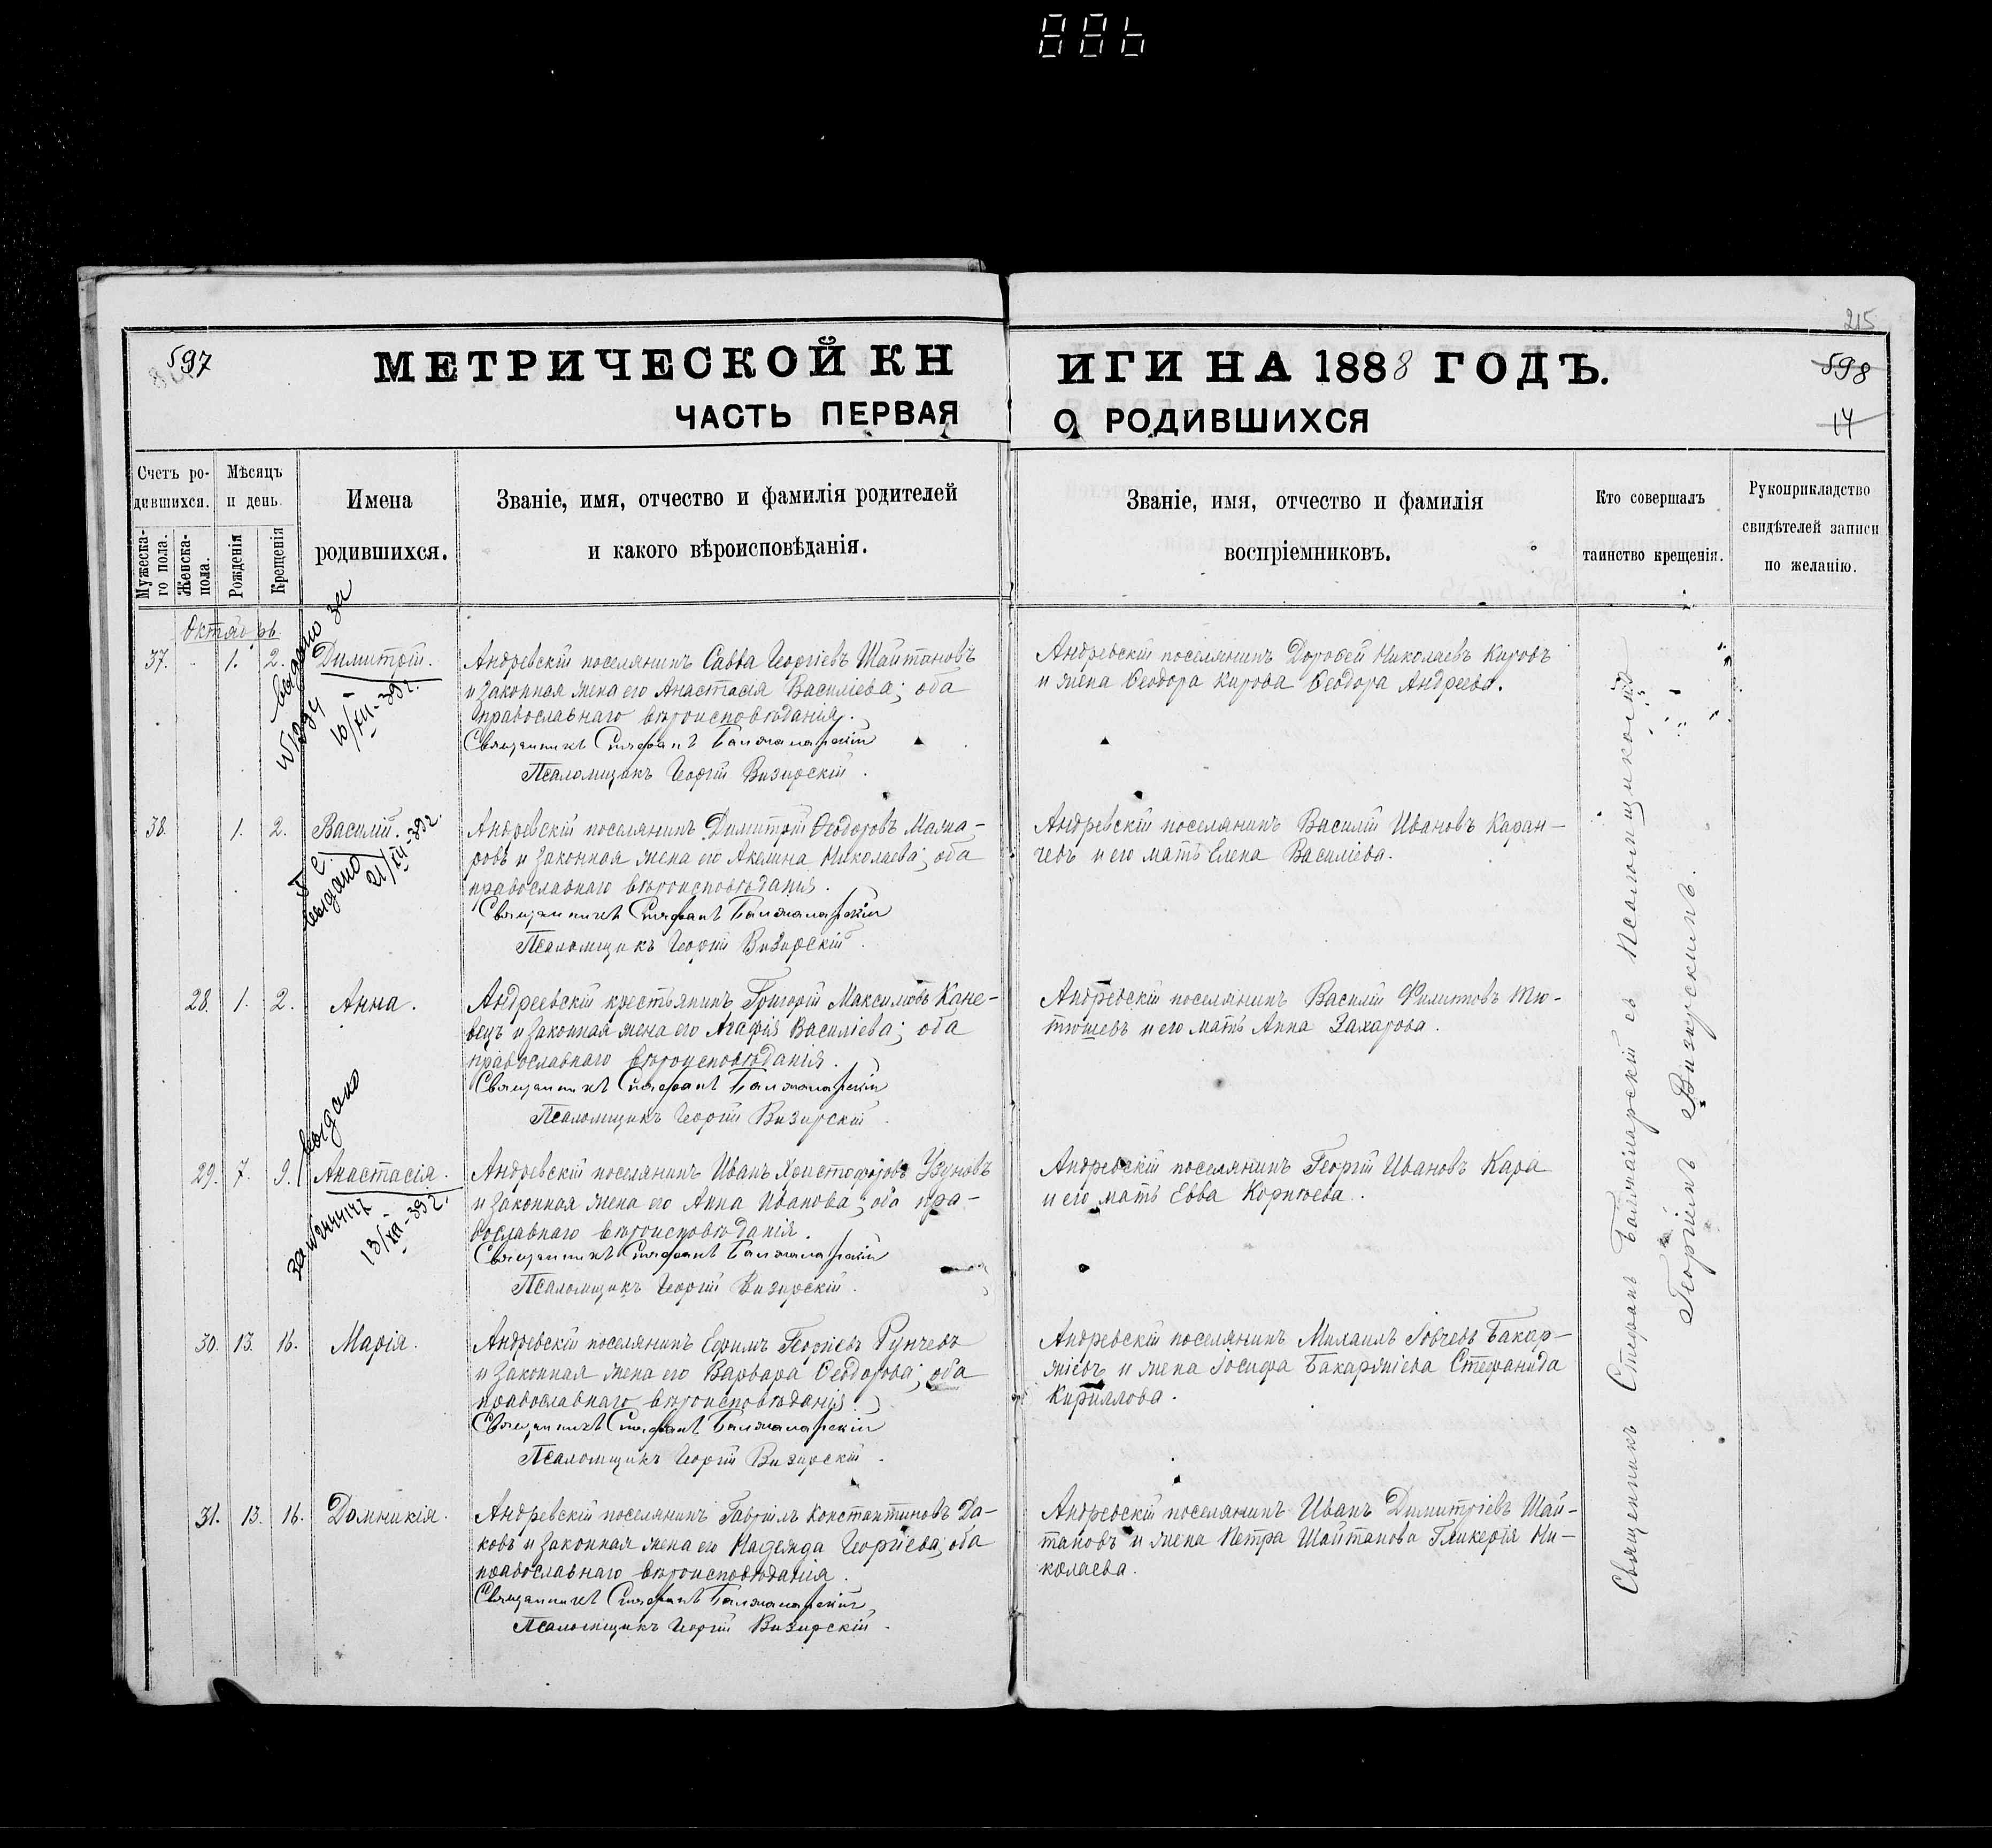 886
215
597
598
17
МЕТРИЧЕСКОЙ КНИГИ НА 1888 ГОДЪ.
ЧАСТЬ ПЕРВАЯ О РОДИВШИХСЯ
Счетъ ро-
дившихся.
Мужеска-
го пола.
Женска-
пола.
Мѣсяцъ
и день.
Рожденія
Крещенія
Имена
родившихся.
Званіе, имя, отчество и фамилія родителей
и какого вѣроисповѣданія.
Званіе, имя, отчество и фамилія
воспріемниковъ.
Кто совершалъ
таинство крещенія.
Рукоприкладство
свидѣтелей записи
по желанію.
Октябрь
37. 1. 2. Димитрій.
выдано за
10/XII-392.
Андревскій поселянинъ Савва Георгіевъ Шайтановъ
и законная жена его Анастасія Василіева; оба
православнаго вѣроисповѣданія.
Священникъ Стефанъ Балжаларскій
Псаломщикъ Георгій Визирскій.
Андревскій поселянинъ Дорофей Николаевъ Кировъ
и жена Ѳеодора Кирова Ѳеодора Андреева.
38. 1. 2. Василій.
выдано 21/XII-392.
Андревскій поселянинъ Димитрій Ѳеодоровъ Мама-
ровъ и законная жена его Акелина Николаева; оба
православнаго вѣроисповѣданія.
Священникъ Стефанъ Балжаларскій
Псаломщикъ Георгій Визирскій.
Андревскій поселянинъ Василій Ивановъ Каран-
чевъ и его мать Елена Василіева.
28. 1. 2. Анна.
Андреевскій крестьянинъ Григорій Максимовъ Кане-
вецъ и законная жена его Агафія Василіева; оба
православнаго вѣроисповѣданія.
Священникъ Стефанъ Балжаларскій
Псаломщикъ Георгій Визирскій.
Андревскій поселянинъ Василій Филиповъ Тю-
тюшевъ и его мать Анна Захарова.
29. 7. 9. Анастасія.
выдано
13/XII-392.
Андревскій поселянинъ Иванъ Христофоровъ Узуновъ
и законная жена его Анна Иванова; оба пра-
вославнаго вѣроисповѣданія.
Священникъ Стефанъ Балжаларскій
Псаломщикъ Георгій Визирскій.
Андревскій поселянинъ Георгій Ивановъ Кара
и его мать Евва Корнѣева.
30. 13. 16. Марія.
Андревскій поселянинъ Ефимъ Георгіевъ Рунчевъ
и законная жена его Варвара Ѳеодорова; оба
православнаго вѣроисповѣданія.
Священникъ Стефанъ Балжаларскій
Псаломщикъ Георгій Визирскій.
Андревскій поселянинъ Михаилъ Іовчевъ Бакар-
жіевъ и жена Іосифа Бакаржіева Стефанида
Кириллова.
31. 13. 16. Домникія.
Андревскій поселянинъ Гавріилъ Константиновъ Да-
ковъ и законная жена его Надежда Георгіева; оба
православнаго вѣроисповѣданія.
Священникъ Стефанъ Балжаларскій
Псаломщикъ Георгій Визирскій.
Андревскій поселянинъ Иванъ Димитріевъ Шай-
тановъ и жена Петра Шайтанова Гликерія Ни-
колаева.
Священникъ Стефанъ Балжаларскій съ псаломщикомъ
Георгіемъ Визирскимъ.